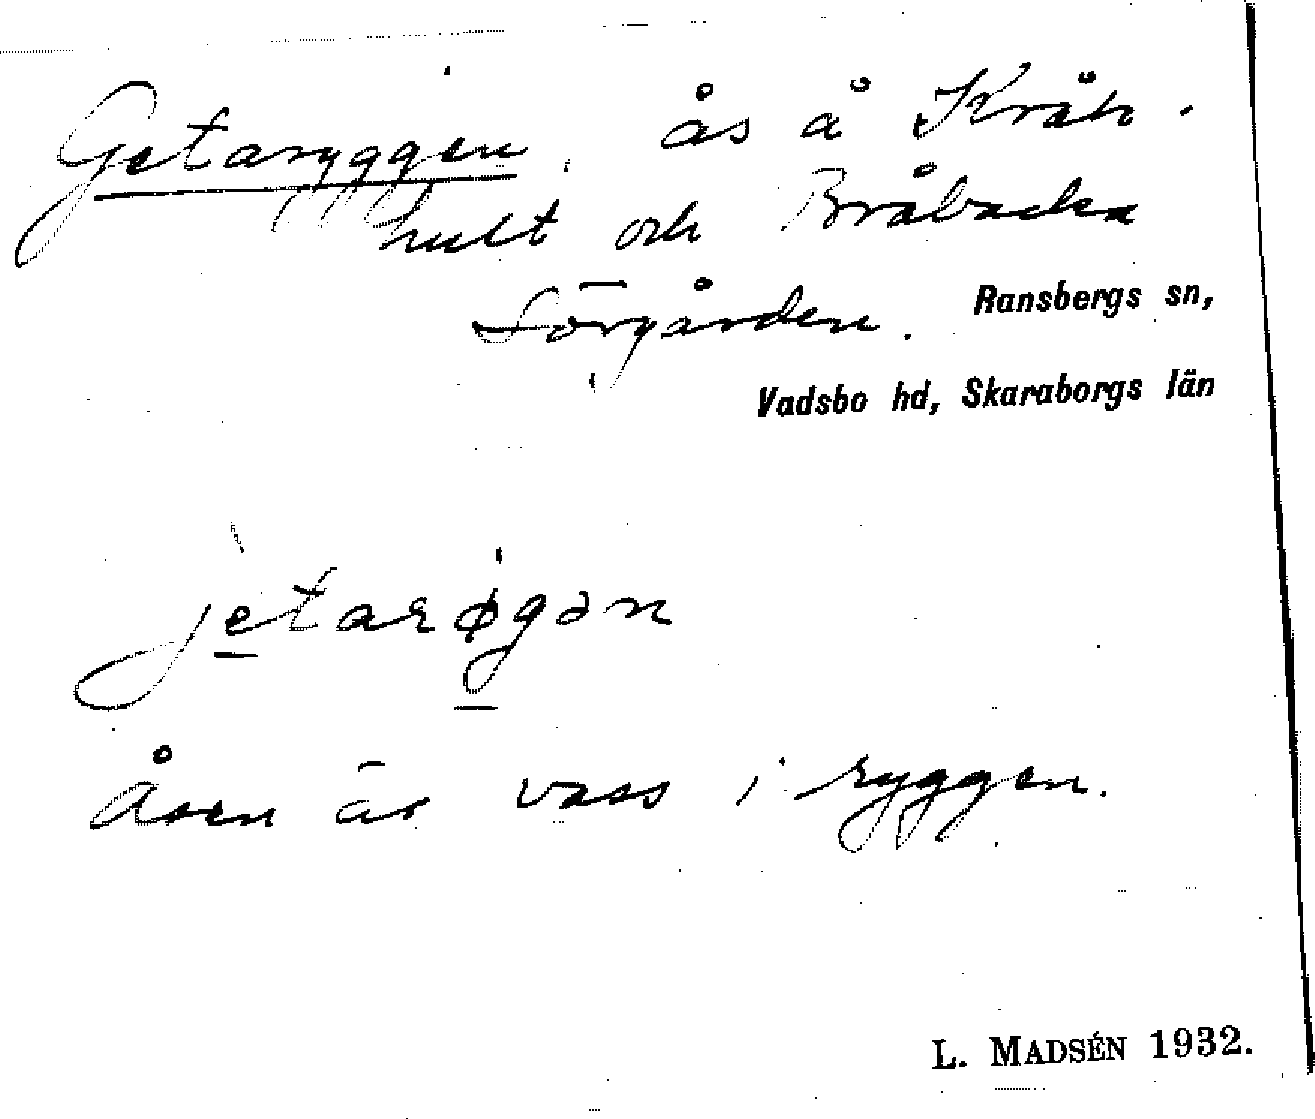 Getaryggen, ås å Kråk-
hult och Bråbacka
Sörgården. Ransbergs sn,
Vadsbo hd, Skaraborgs län
jetarøgən
Åsen är vass i ryggen.
L. MADSÉN 1932.